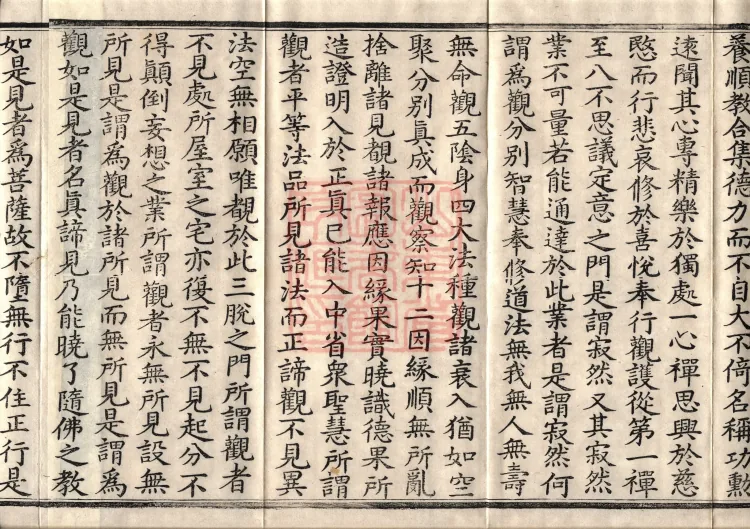 養順教合集德力而不自大不倚名稱功勳
遠聞其心專精樂於獨處一心禪思興於慈
愍而行悲哀修於喜悅奉行觀護從第一禪
至八不思議定意之門是謂寂然又其寂然
業不可量若能通達於此業者是謂寂然何
謂爲觀分別智慧奉修道法無我無人無壽
無命觀五陰身四大法種觀諸衰入猶如空
聚分別真成而觀察知十二因緣順無所亂
捨離諸見覩諸報應因緣果實曉識德果所
造證明入於正真已能入中省衆聖慧所謂
觀者平等法品所見諸法而正諦觀不見異
法空無相願唯覩於此三脫之門所謂觀者
不見處所屋室之宅亦復不無不見起分不
得顛倒妄想之業所謂觀者永無所見設無
所見是謂爲觀於諸所見而無所見是謂爲
觀如是見者名真諦見乃能曉了隨佛之教
如是見者爲菩薩故不墮無行不住正行是